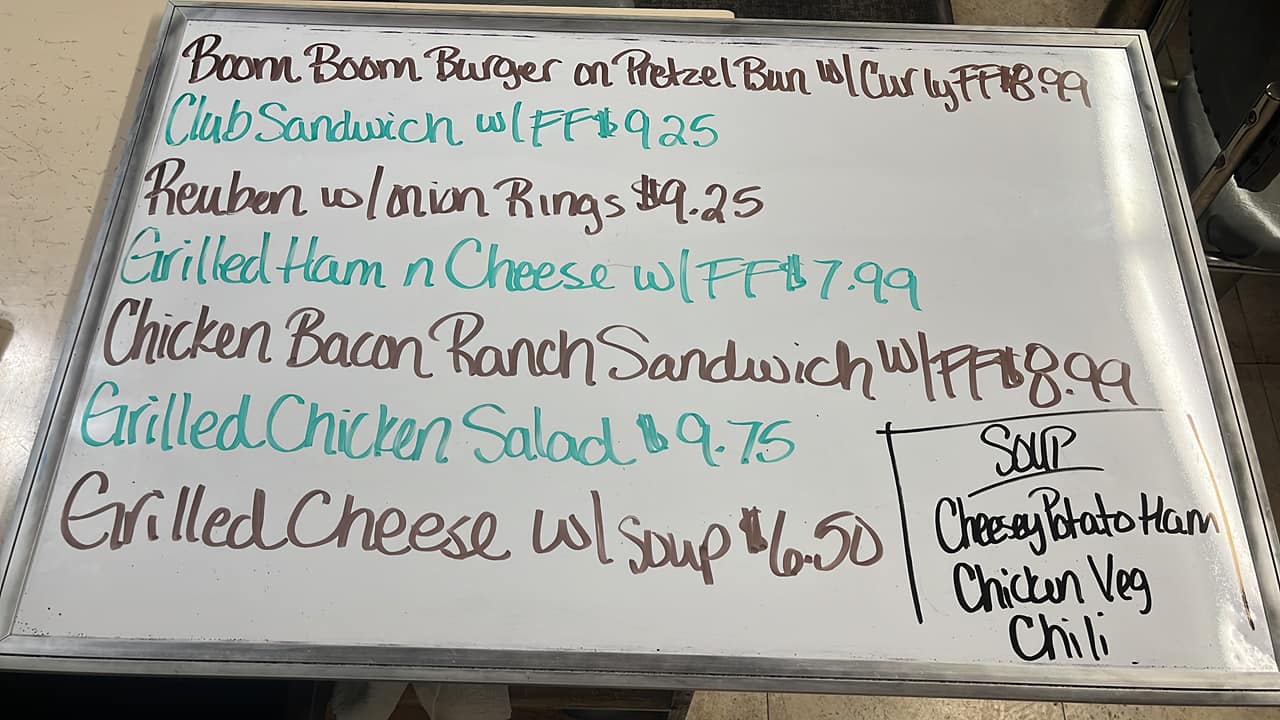 Boom Boom Burger on Pretzel Bun w/Curly FF $8.99
Club Sandwich w/FF $9.25
Reuben w/onion Rings $9.25
Grilled Ham n Cheese w/FF $7.99
Chicken Bacon Ranch Sandwich w/FF $8.99
Grilled Chicken Salad $9.75
Grilled Cheese w/Soup $6.50
Soup
Cheesey Potato Ham
Chicken Veg
Chili